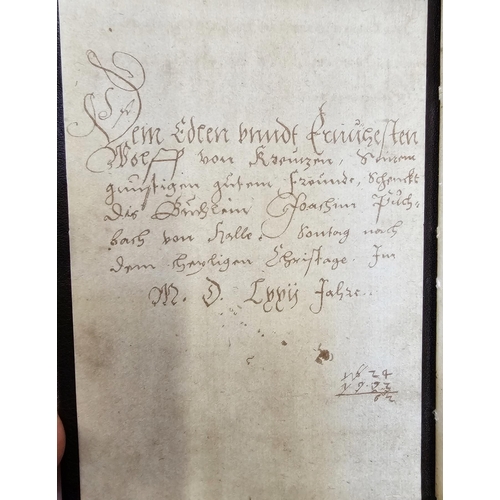 Dem Edlen vnndt Ernuhesten
Wolff von Kreutzen, Seinem
gunstigen gutem freunde, Schenckt
dis Buchlein Joachim Puch-
bach von Halle. Sontag nach
dem heyligen Christage. Im
M. D. Lxxij Jahre.
1624
62